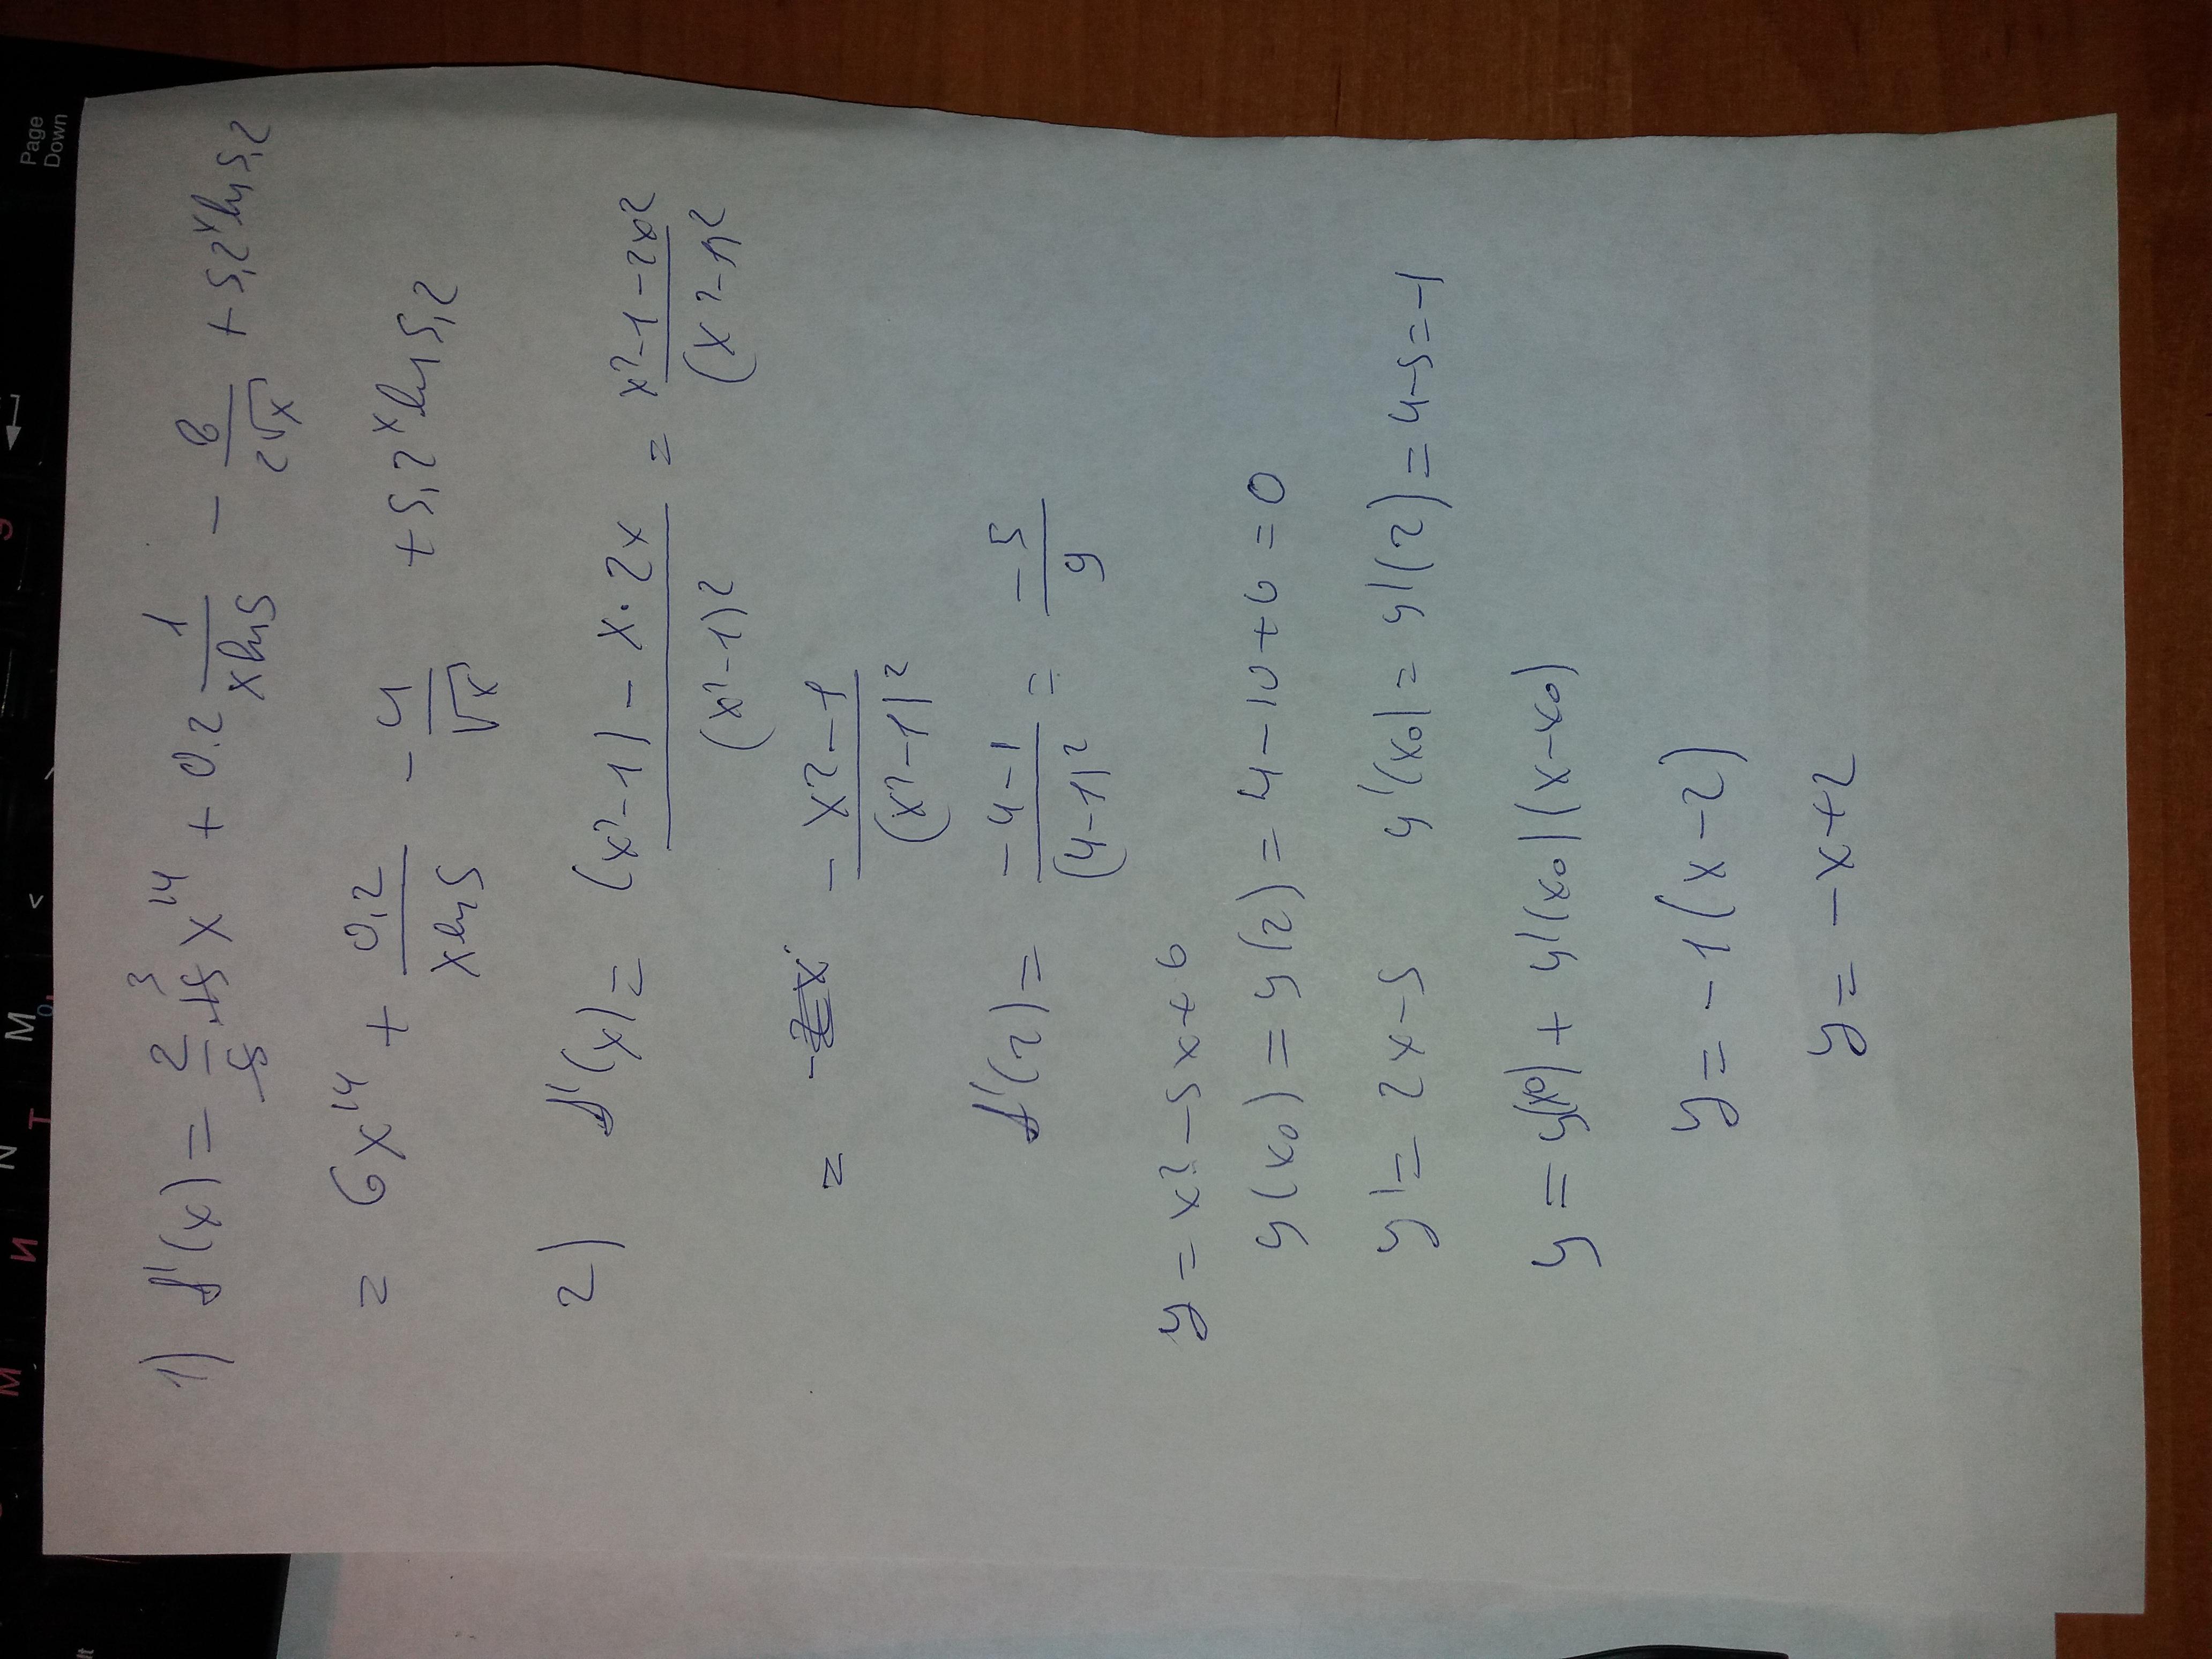 1) f'(x) = 2/5 · 15 3 x^14 + 0.2 1/(x ln5) - 8/(2√x) + 5,2^x ln 5,2
= 6x^14 + 0,2/(x ln5) - 4/√x + 5,2^x ln 5,2
2) f'(x) = ((x²-1) - x·2x)/(x²-1)² = (x²-1-2x²)/(x²-1)²
= (-x²-1)/(x²-1)²
f'(2) = (-4-1)/(4-1)² = -5/9
y = x²-5x+6
y(x₀) = y(2) = 4-10+6 = 0
y' = 2x-5 y'(x₀) = y'(2) = 4-5 = -1
y = y(x₀) + y'(x₀)(x-x₀)
y = -1(x-2)
y = -x+2
Page
Down